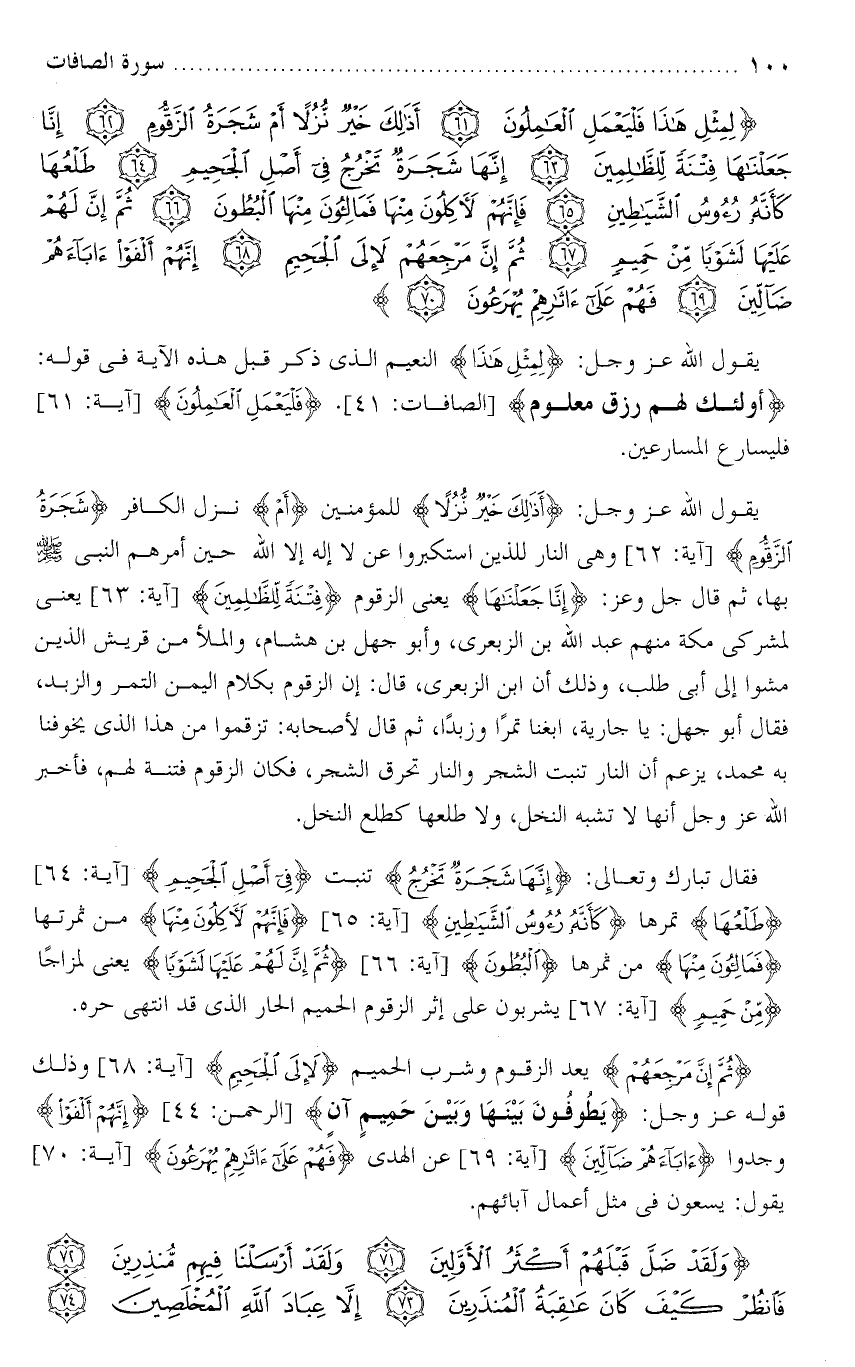 ١٠٠ ........................................................................ سورة الصافات
﴿لِمِثْلِ هَٰذَا فَلْيَعْمَلِ ٱلْعَٰمِلُونَ ٦١ أَذَٰلِكَ خَيْرٌ نُّزُلًا أَمْ شَجَرَةُ ٱلزَّقُّومِ ٦٢ إِنَّا
جَعَلْنَٰهَا فِتْنَةً لِّلظَّٰلِمِينَ ٦٣ إِنَّهَا شَجَرَةٌ تَخْرُجُ فِىٓ أَصْلِ ٱلْجَحِيمِ ٦٤ طَلْعُهَا
كَأَنَّهُۥ رُءُوسُ ٱلشَّيَٰطِينِ ٦٥ فَإِنَّهُمْ لَءَاكِلُونَ مِنْهَا فَمَالِـُٔونَ مِنْهَا ٱلْبُطُونَ ٦٦ ثُمَّ إِنَّ لَهُمْ
عَلَيْهَا لَشَوْبًا مِّنْ حَمِيمٍ ٦٧ ثُمَّ إِنَّ مَرْجِعَهُمْ لَإِلَى ٱلْجَحِيمِ ٦٨ إِنَّهُمْ أَلْفَوْا۟ ءَابَآءَهُمْ
ضَآلِّينَ ٦٩ فَهُمْ عَلَىٰٓ ءَاثَٰرِهِمْ يُهْرَعُونَ ٧٠ ﴾
يقول الله عز وجل: ﴿لِمِثْلِ هَٰذَا﴾ النعيم الذى ذكر قبل هذه الآية فى قوله:
﴿أولئك لهم رزق معلوم﴾ [الصافات: ٤١]. ﴿فَلْيَعْمَلِ ٱلْعَٰمِلُونَ﴾ [آية: ٦١]
فليسارع المسارعين.
يقول الله عز وجل: ﴿أَذَٰلِكَ خَيْرٌ نُّزُلًا﴾ للمؤمنين ﴿أَمْ﴾ نزل الكافر ﴿شَجَرَةُ
ٱلزَّقُّومِ﴾ [آية: ٦٢] وهى النار للذين استكبروا عن لا إله إلا الله حين أمرهم النبى ﷺ
بها، ثم قال جل وعز: ﴿إِنَّا جَعَلْنَٰهَا﴾ يعنى الزقوم ﴿فِتْنَةً لِّلظَّٰلِمِينَ﴾ [آية: ٦٣] يعنى
لمشركى مكة منهم عبد الله بن الزبعرى، وأبو جهل بن هشام، والملأ من قريش الذين
مشوا إلى أبى طلب، وذلك أن ابن الزبعرى، قال: إن الزقوم بكلام اليمن التمر والزبد،
فقال أبو جهل: يا جارية، ابغنا تمرًا وزبدًا، ثم قال لأصحابه: تزقموا من هذا الذى يخوفنا
به محمد، يزعم أن النار تنبت الشجر والنار تحرق الشجر، فكان الزقوم فتنة لهم، فأخبر
الله عز وجل أنها لا تشبه النخل، ولا طلعها كطلع النخل.
فقال تبارك وتعالى: ﴿إِنَّهَا شَجَرَةٌ تَخْرُجُ﴾ تنبت ﴿فِىٓ أَصْلِ ٱلْجَحِيمِ﴾ [آية: ٦٤]
﴿طَلْعُهَا﴾ تمرها ﴿كَأَنَّهُۥ رُءُوسُ ٱلشَّيَٰطِينِ﴾ [آية: ٦٥] ﴿فَإِنَّهُمْ لَءَاكِلُونَ مِنْهَا﴾ من ثمرتها
﴿فَمَالِـُٔونَ مِنْهَا﴾ من ثمرها ﴿ٱلْبُطُونَ﴾ [آية: ٦٦] ﴿ثُمَّ إِنَّ لَهُمْ عَلَيْهَا لَشَوْبًا﴾ يعنى لمزاجًا
﴿مِّنْ حَمِيمٍ﴾ [آية: ٦٧] يشربون على إثر الزقوم الحميم الحار الذى قد انتهى حره.
﴿ثُمَّ إِنَّ مَرْجِعَهُمْ﴾ يعد الزقوم وشرب الحميم ﴿لَإِلَى ٱلْجَحِيمِ﴾ [آية: ٦٨] وذلك
قوله عز وجل: ﴿يَطُوفُونَ بَيْنَهَا وَبَيْنَ حَمِيمٍ آنٍ﴾ [الرحمن: ٤٤] ﴿إِنَّهُمْ أَلْفَوْا۟﴾
وجدوا ﴿ءَابَآءَهُمْ ضَآلِّينَ﴾ [آية: ٦٩] عن الهدى ﴿فَهُمْ عَلَىٰٓ ءَاثَٰرِهِمْ يُهْرَعُونَ﴾ [آية: ٧٠]
يقول: يسعون فى مثل أعمال آبائهم.
﴿وَلَقَدْ ضَلَّ قَبْلَهُمْ أَكْثَرُ ٱلْأَوَّلِينَ ٧١ وَلَقَدْ أَرْسَلْنَا فِيهِم مُّنذِرِينَ ٧٢
فَٱنظُرْ كَيْفَ كَانَ عَٰقِبَةُ ٱلْمُنذَرِينَ ٧٣ إِلَّا عِبَادَ ٱللَّهِ ٱلْمُخْلَصِينَ ٧٤